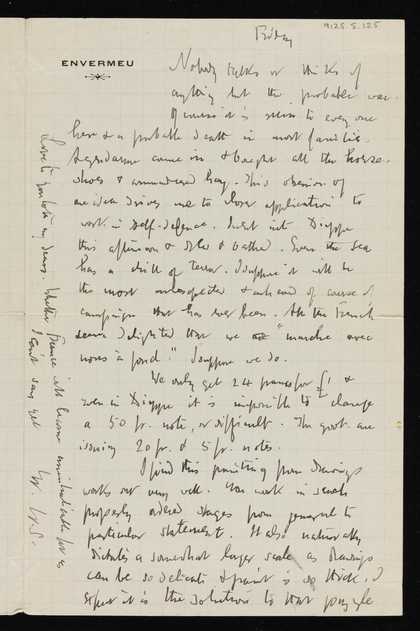 9125.5.125
Friday
ENVERMEU
Nobody talks or thinks of
anything but the probable war.
Of course it is serious to every one
here & a probable death in most families.
came in & bought all the horse
shoes & commandeered hay. This obsession of
an idea drives me to closer application to
work in self-defence. I went into Dieppe
this afternoon & & bathed. Even the sea
has a thrill of terror. I suppose it will be
the most unexpected & unheard of course of
campaign that has ever been. All the French
seem delighted that we "marche avec
nous à fond!" I suppose we do.
We only get 24 francs for £1 &
even in Dieppe it is impossible to change
a 50 fr. note, or difficult. The govt. are
issuing 20 fr. & 5 fr. notes.
I find this painting from drawings
works out very well. You work in
properly ordered stages from general to
particular statement. It also naturally
dictates a somewhat larger scale as drawings
can be so delicate & paint is so thick. I
expect it is the solution to that puzzle
Love to you both my dears. Whether France will become uninhabitable for us
I can't say yet
W. S.